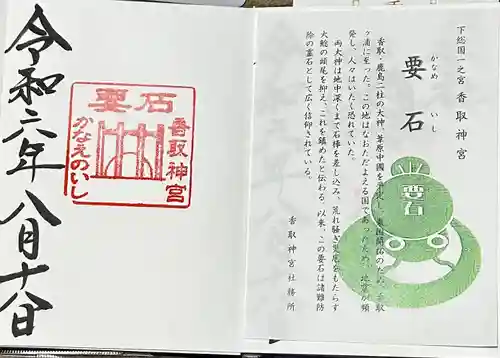 下総国一之宮 香取神宮
要石
かなめ いし
香取・鹿島二社の大神、葦原中國を平定し、東国開拓のため、香取
ヶ浦に至った。この地はなおただよえる国であったため、地震が頻
発し、人々はいたく恐れていた。
両大神は地中深くまで石棒を差し込み、荒れ騒ぎ災厄をもたらす
大鯰の頭尾を抑え、これを鎮めたと伝わる。以来、この要石は諸難防
除の霊石として広く信仰されている。
香取神宮社務所
要石
要石
香取神宮
かなえのいし
令和六年八月十八日